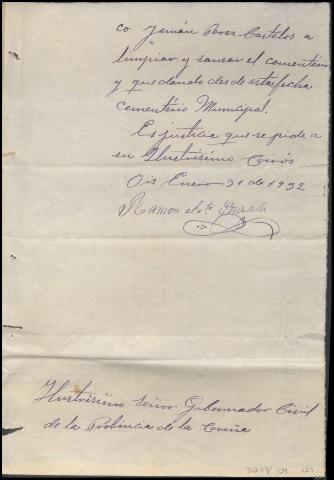 co Jemán Perez Castelos a
limpiar y sanear el cementerio
y quedando desde esta fecha
cementerio Municipal.
Es justicia que se pide a
su Ilustrisimo
Ois Enero 31 de 1932
Ramon
Ilustrisimo Señor Gobernador Civil
de la Probincia de la Coruña